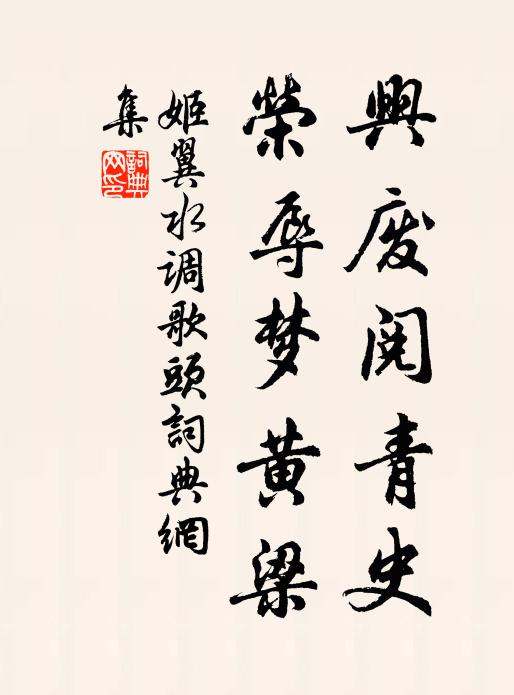 興废阅青史
榮辱梦黄粱
姬翼水调歌頭詞典網
集
詞典
网印